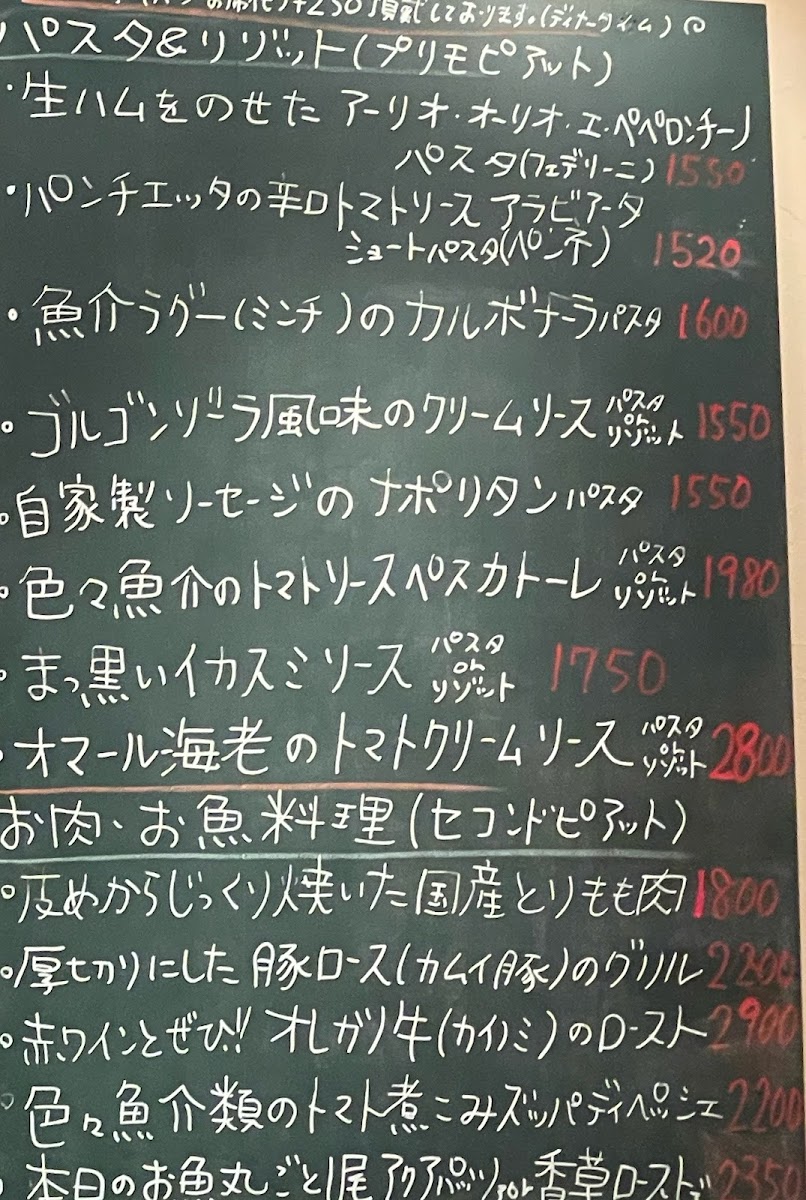 +250頂戴しております。(ディナータイム)
パスタ&リゾット(プリモピアット)
・生ハムをのせた アーリオ・オーリオ・エ・ペペロンチーノ
パスタ(フェデリーニ) 1550
・パンチェッタの辛口トマトソース アラビアータ
ショートパスタ(ペンネ) 1520
・魚介ラグー(ミンチ)のカルボナーラパスタ 1600
・ゴルゴンゾーラ風味のクリームソース パスタ or リゾット 1550
・自家製ソーセージのナポリタンパスタ 1550
・色々魚介のトマトソースペスカトーレ パスタ or リゾット 1980
・まっ黒いイカスミソース パスタ or リゾット 1750
・オマール海老のトマトクリームソース パスタ or リゾット 2800
お肉、お魚料理(セコンドピアット)
・皮めからじっくり焼いた国産とりもも肉 1800
・厚切りにした豚ロース(カムイ豚)のグリル 2200
・赤ワインとぜひ!! オレガノ牛(カイノミ)のロースト 2900
・色々魚介類のトマト煮こみズッパディペッシェ 2200
・本日のお魚丸ごと1尾アクアパッツァor香草ロースト 2350